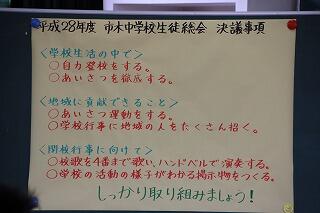 平成28年度 市木中学校生徒総会 決議事項
<学校生活の中で>
○自力登校をする。
○あいさつを徹底する。
<地域に貢献できること>
○あいさつ運動をする。
○学校行事に地域の人をたくさん招く。
<閉校行事に向けて>
○校歌を4番まで歌い、ハンドベルで演奏する。
○学校の活動の様子がわかる掲示物をつくる。
しっかり取り組みましょう!